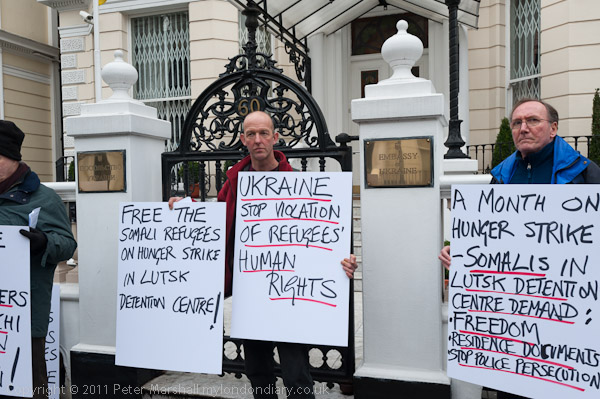 60
EMBASSY
UKRAINE
FREE THE
SOMALI REFUGEES
ON HUNGER STRIKE
IN LUTSK
DETENTION CENTRE!
UKRAINE
STOP VIOLATION
OF REFUGEES'
HUMAN
RIGHTS
A MONTH ON
HUNGER STRIKE
- SOMALIS IN
LUTSK DETENTION
CENTRE DEMAND:
• FREEDOM
• RESIDENCE DOCUMENTS
• STOP POLICE PERSECUTION
!
Copyright © 2011 Peter Marshall mylondondiary.co.uk